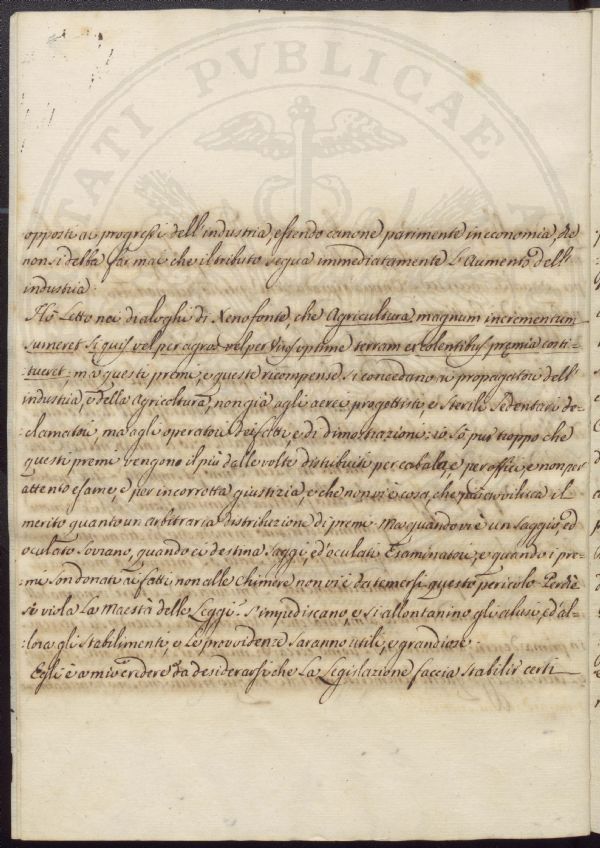 ATI PVBLICAE
opposti ai progressi dell'industria, essendo canone parimente in economia, che
non si debba far mai che il tributo segua immediatamente l'Aumento dell'
industria.
Hò Letto nei dialoghi di Xenofonte, che Agricultura magnum incrementum
sumeret si quis vel per agros vel per Vicos optime terram excolentibus premia costi-
-tueret; ma questi premi, e queste ricompense si concedano ai propagatori dell'
industria, e della Agricoltura, non già agli aerei progettisti, e sterili sedentari de-
-clamatori, ma agli operatori dei fatti, e di dimostrazioni: io sò pur troppo che
questi premi vengono il più delle volte distribuiti per cabala, e per office, e non per
attento esame, e per incorrotta giustizia, e che non vi è cosa, che più avvilisca il
merito quanto un arbitraria distribuzione di premi. Ma quando vi è un saggio, ed
oculato Sovrano, quando ei destina saggi, ed oculati Esaminatori, e quando i pre-
-mi son donati ai fatti, non alle chimere non vi è da temersi questo pericolo. Perchè
si viola La Maestà delle Leggi? S'impediscano, e si allontanino gli abusi, ed al-
-lora gli stabilimenti, e Le provvidenze saranno utili, e grandiose.
Egli è a mio credere da desiderarsi che La Legislazione faccia stabilir certi